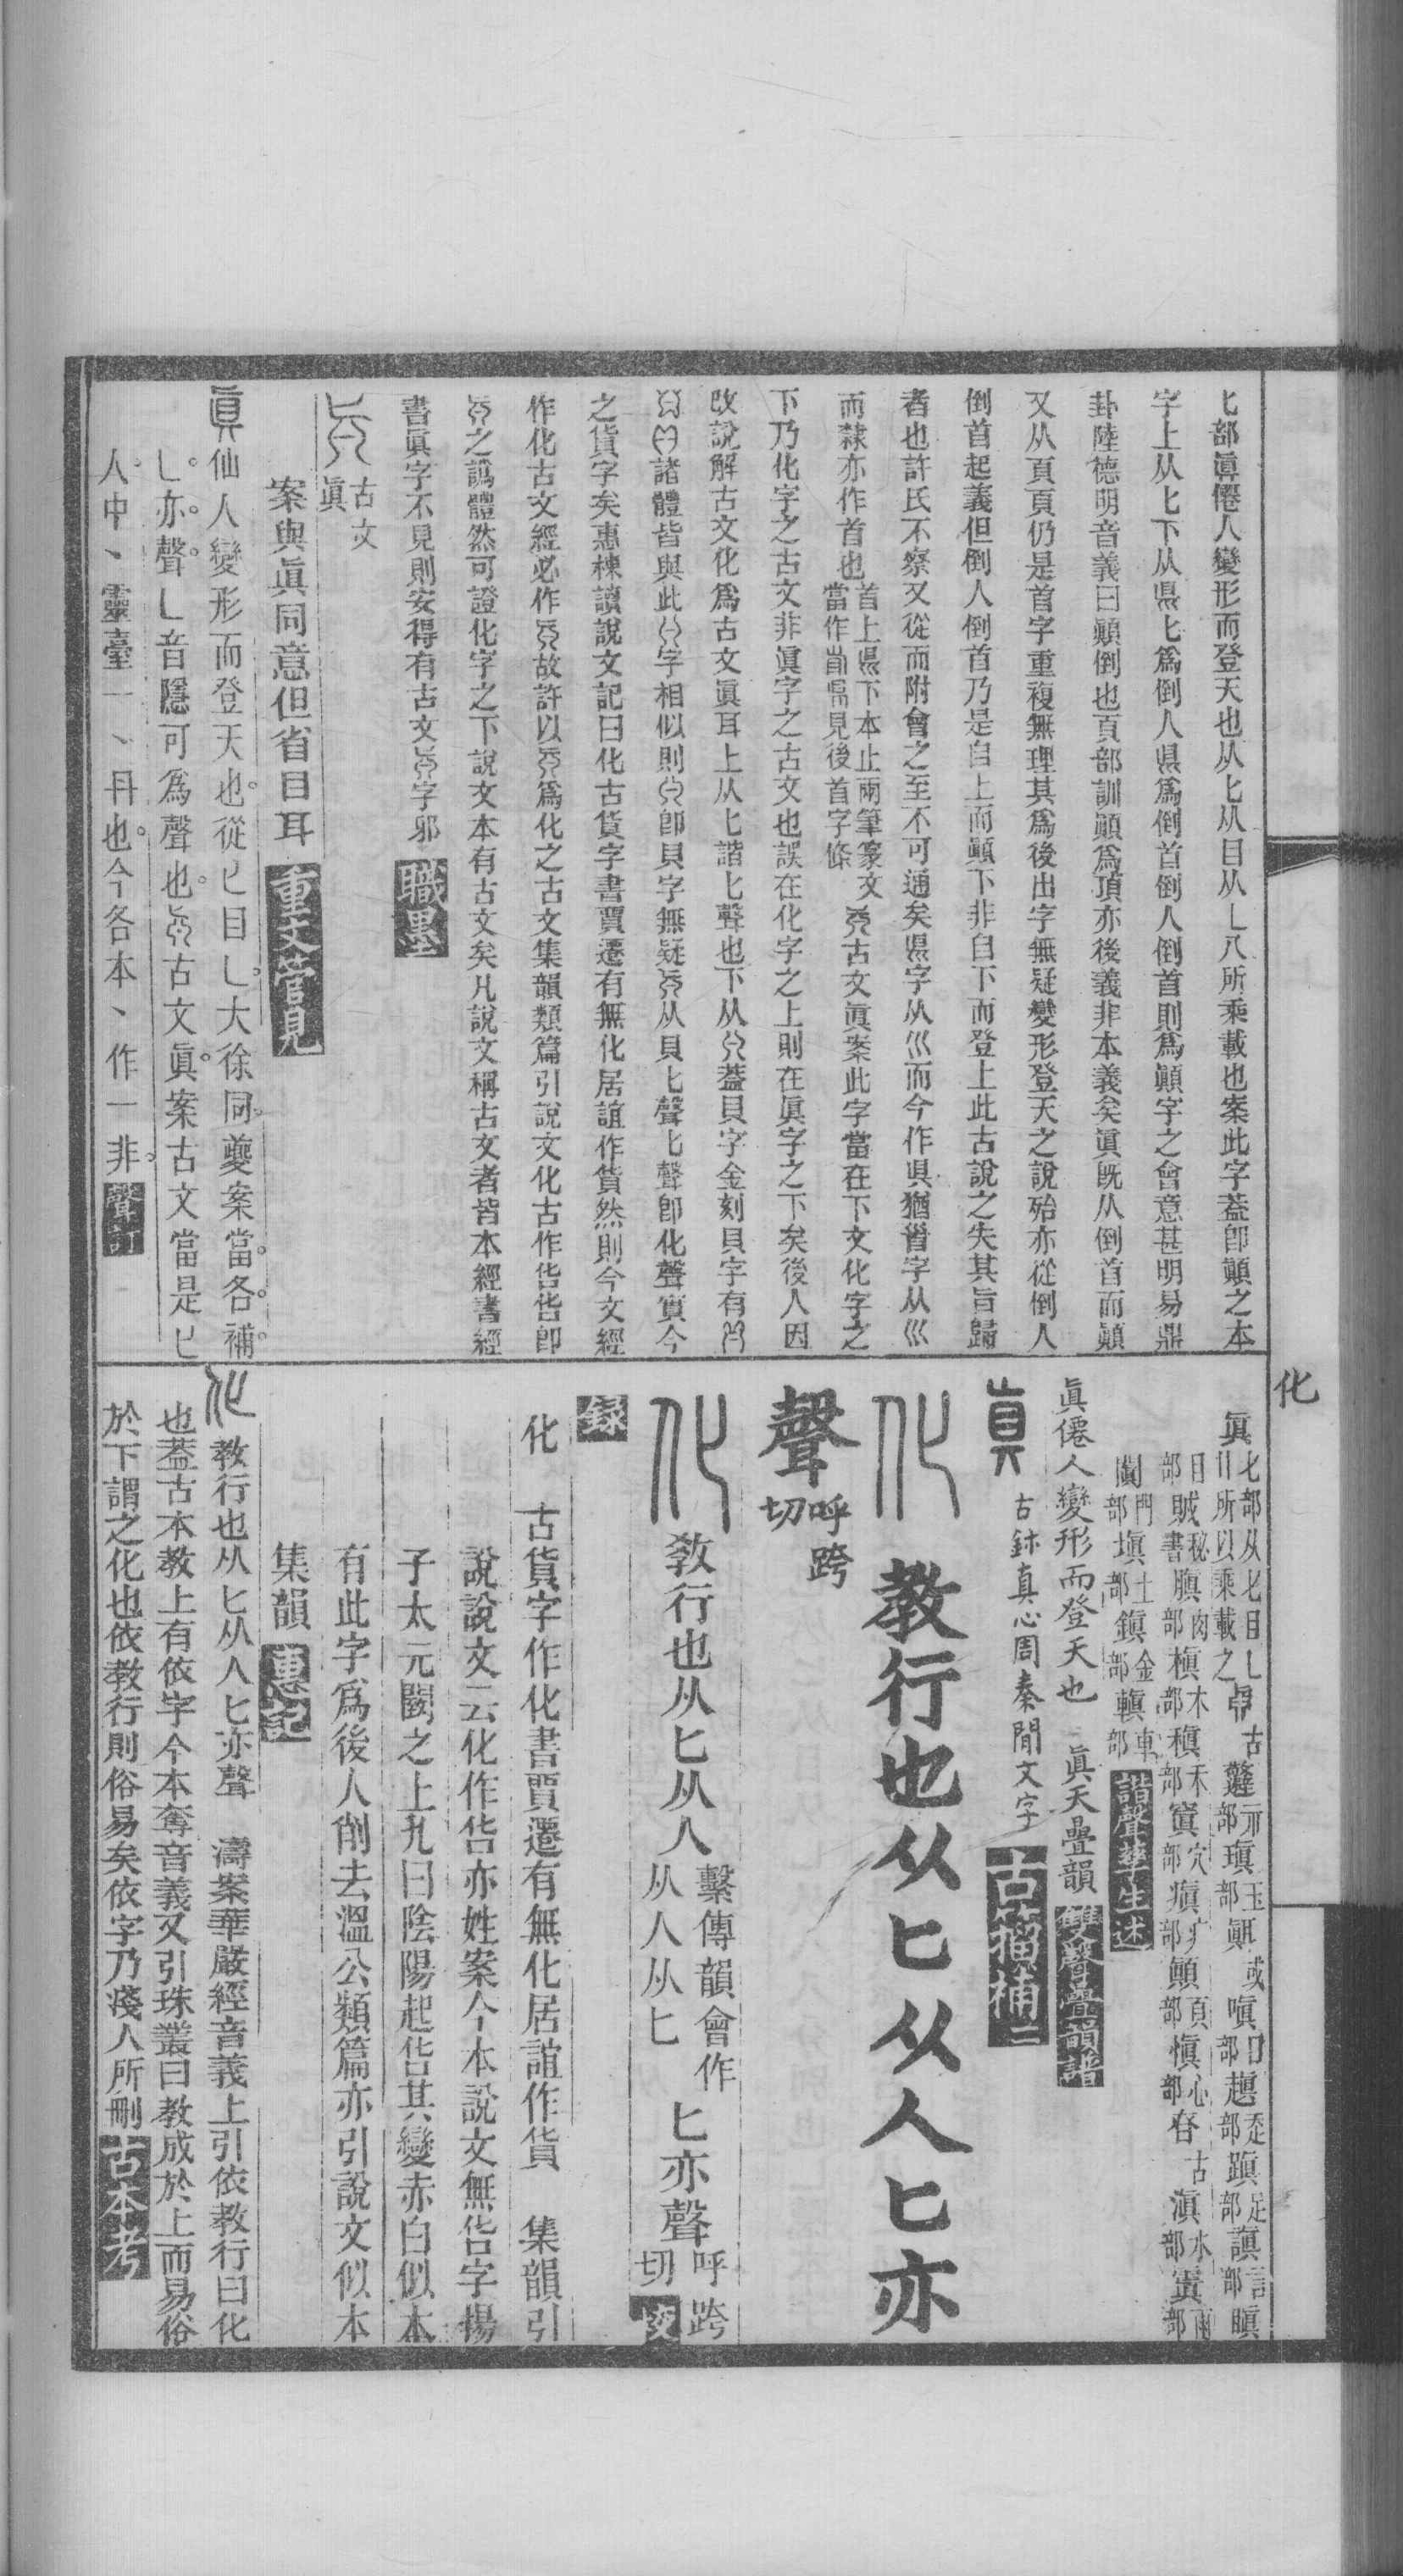 化
匕部眞僊人變形而登天也从匕从目从乚八所乘載也案此字葢卽顚之本
字上从匕下从県匕爲倒人県爲倒首倒人倒首則爲顚字之會意甚明易鼎
卦陸德明音義曰顚倒也頁部訓顚爲頂亦後義非本義矣眞旣从倒首而顚
又从頁頁仍是首字重複無理其爲後出字無疑變形登天之說殆亦從倒人
倒首起義但倒人倒首乃是自上而顚下非自下而登上此古說之失其旨歸
者也許氏不察又從而附會之至不可通矣県字从巛而今作県猶𩠐字从巛
而隸亦作首也首上県下本止兩筆篆文當作見後首字條古文眞案此字當在下文化字之
下乃化字之古文非眞字之古文也誤在化字之上則在眞字之下矣後人因
改說解古文化爲古文眞耳上从匕諧匕聲也下从葢貝字金刻貝字有
諸體皆與此字相似則卽貝字無疑从貝匕聲匕聲卽化聲實今
之貨字矣惠棟讀說文記曰化古貨字書賈遷有無化居誼作貨然則今文經
作化古文經必作故許以爲化之古文集韻類篇引說文化古作𠤎𠤎卽
之譌體然可證化字之下說文本有古文矣凡說文稱古文者皆本經書經
書眞字不見則安得有古文字邪 職墨
古文眞
案與眞同意但省目耳 重文管見
眞仙人變形而登天也從匕目乚大徐同夔案當各補
乚亦聲乚音隱可爲聲也古文眞案古文當是匕
人中丶靈臺一丶丹也今各本丶作一非 聲訂
眞匕部从匕目乚所以乘載之古部瑱玉部或嗔口部趚部蹎足部謓言部瞋
目部賊秘書腹肉部槇木部稹禾部窴穴部瘨疒部顚頁部愼心部昚古滇水部雨部
闐門部塡土部鎭金部轒車部 諧聲孳生述
眞僊人變形而登天也 眞天疊韻 雙聲疊韻譜
眞 古鉥真心周秦間文字 古籀補二
化 教行也从匕从人匕亦
聲呼跨切
化 教行也从匕从人繫傳韻會作从人从匕匕亦聲呼跨切 校
錄
化 古貨字作化書賈遷有無化居誼作貨 集韻引
說說文云化作𠤎亦姓案今本說文無𠤎字揚
子太元閼之上九曰陰陽起𠤎其變赤白似本
有此字爲後人削去溫公類篇亦引說文似本
集韻 惠記
化 教行也从匕从人匕亦聲 濤案華嚴經音義上引依教行曰化
也葢古本教上有依字今本奪音義又引珠叢曰教成於上而易俗
於下謂之化也依教行則俗易矣依字乃淺人所刪 古本考